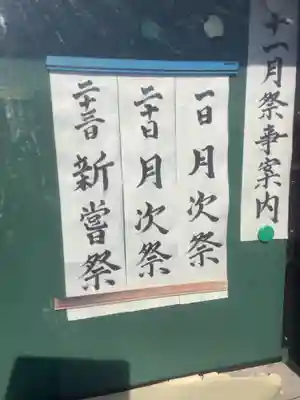 十一月祭事案内
一日 月次祭
二十日 月次祭
二十三日 新嘗祭